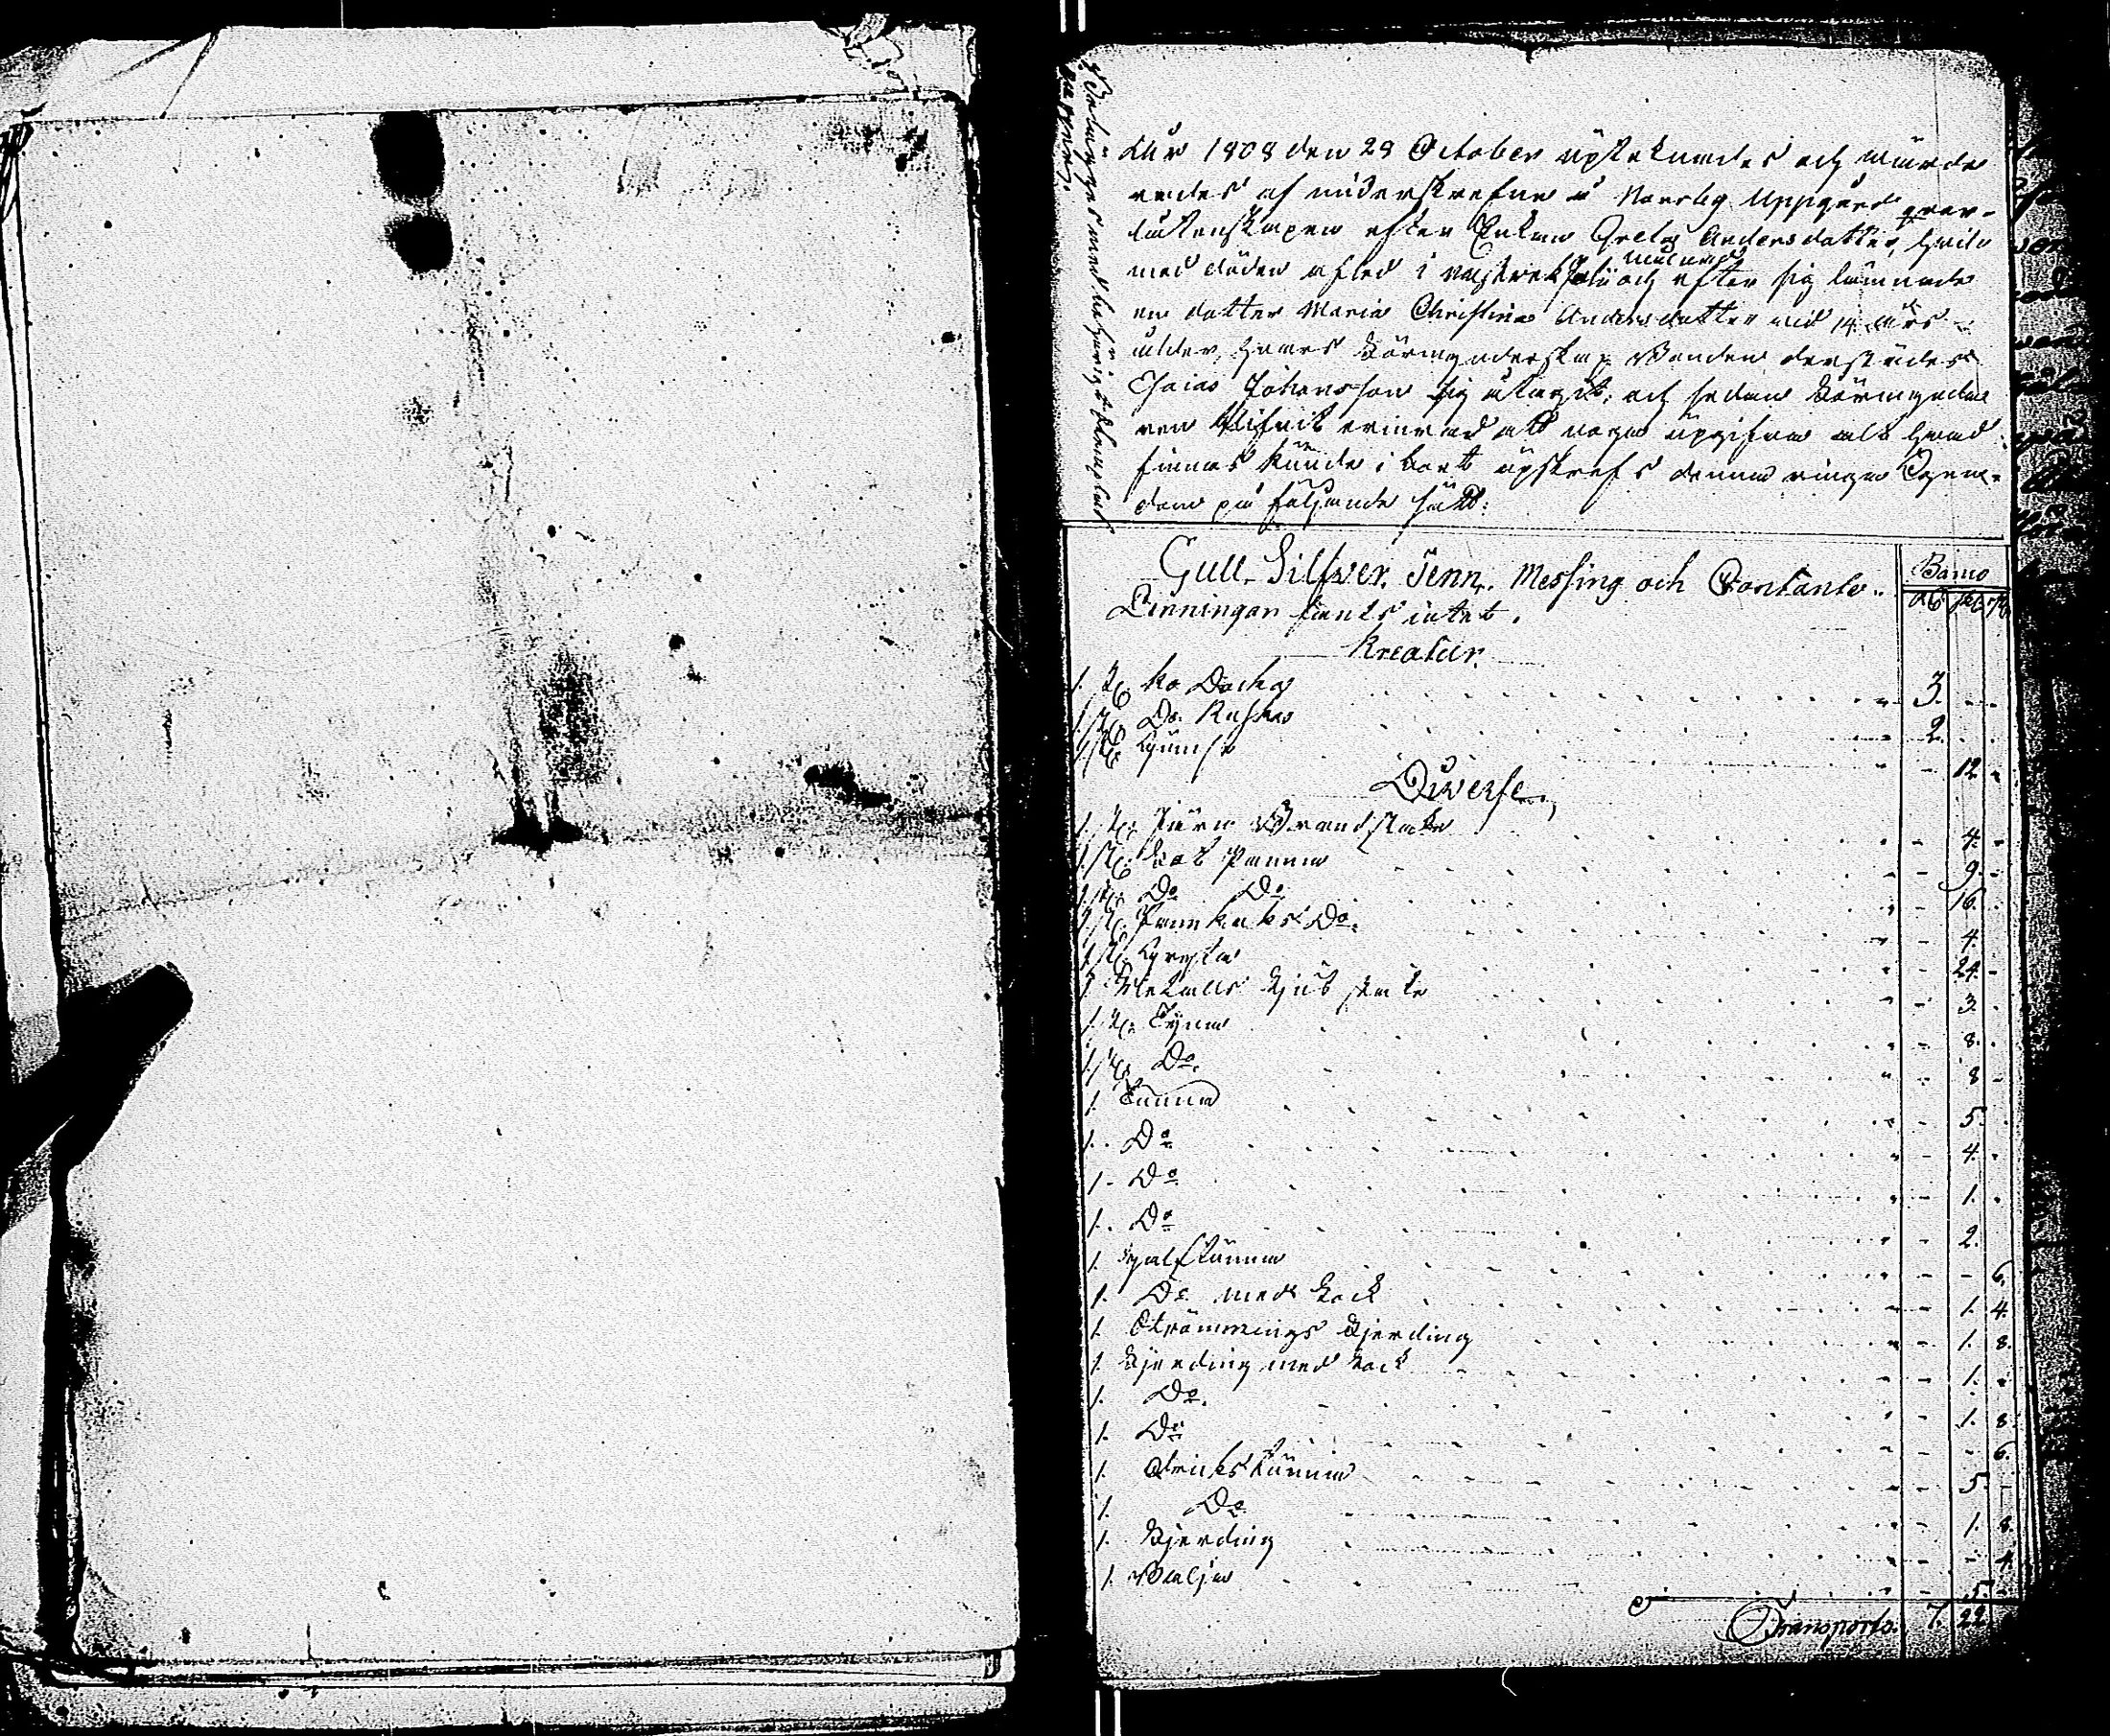 Åhr 1808 den 29 October upteknades och wärde
rades af underskrefne i Norrby Uppgård qvar-
låtenskapen efter Enkan Greta Andersdotter, hvilken
med döden afled i och efter sig lämnade
en dotter Maria Christina Andersdotter vid 14 års
ålder, hvars Förmynderskap Bonden derstädes
Esaias Johansson sig åtagit, och sedan Förmynda
ren blifvit erinrad att noga upgifva alt hvad
finnas kunde i boet upskrefs denna ringa Egen-
dom på följande sätt:
Gull, Silfwer, Tenn, Messing och Contante
Penningar fants intet.
Banco
Rd sk. rs
Kreatur.
1. st. ko Docka 3. - -
1 st. Do. 2. - -
1 st. - 12 -
Diverse,
1. st. Järn Brandstake - 4. -
1 st. Fat Panna - 9. -
1 st. Do Do - 16. -
1 st. Pannkaks Do. - 4. -
1 st. Gryta - 24. -
1 Metalls ljus stake - 3. -
1. st. Tyna - 8. -
1. st. Do. - 8 -
1. Tunna - 5. -
1. Do - 4. -
1 - Do - 1. -
1. Do - 2. -
1. Half tunna - - 6.
1. Do med Lock - 1. 4.
1. Strömmings Fjerding - 1. 8.
1. Fjerding med Lock - 1. -
1. Do. - 1. 8.
1. Do - - 6.
1. Dricks tunna - 5. -
1. Do. - 1. 8.
1. Fjerding - - 4.
1. Balja - 5. -
Transporto. 7. 22